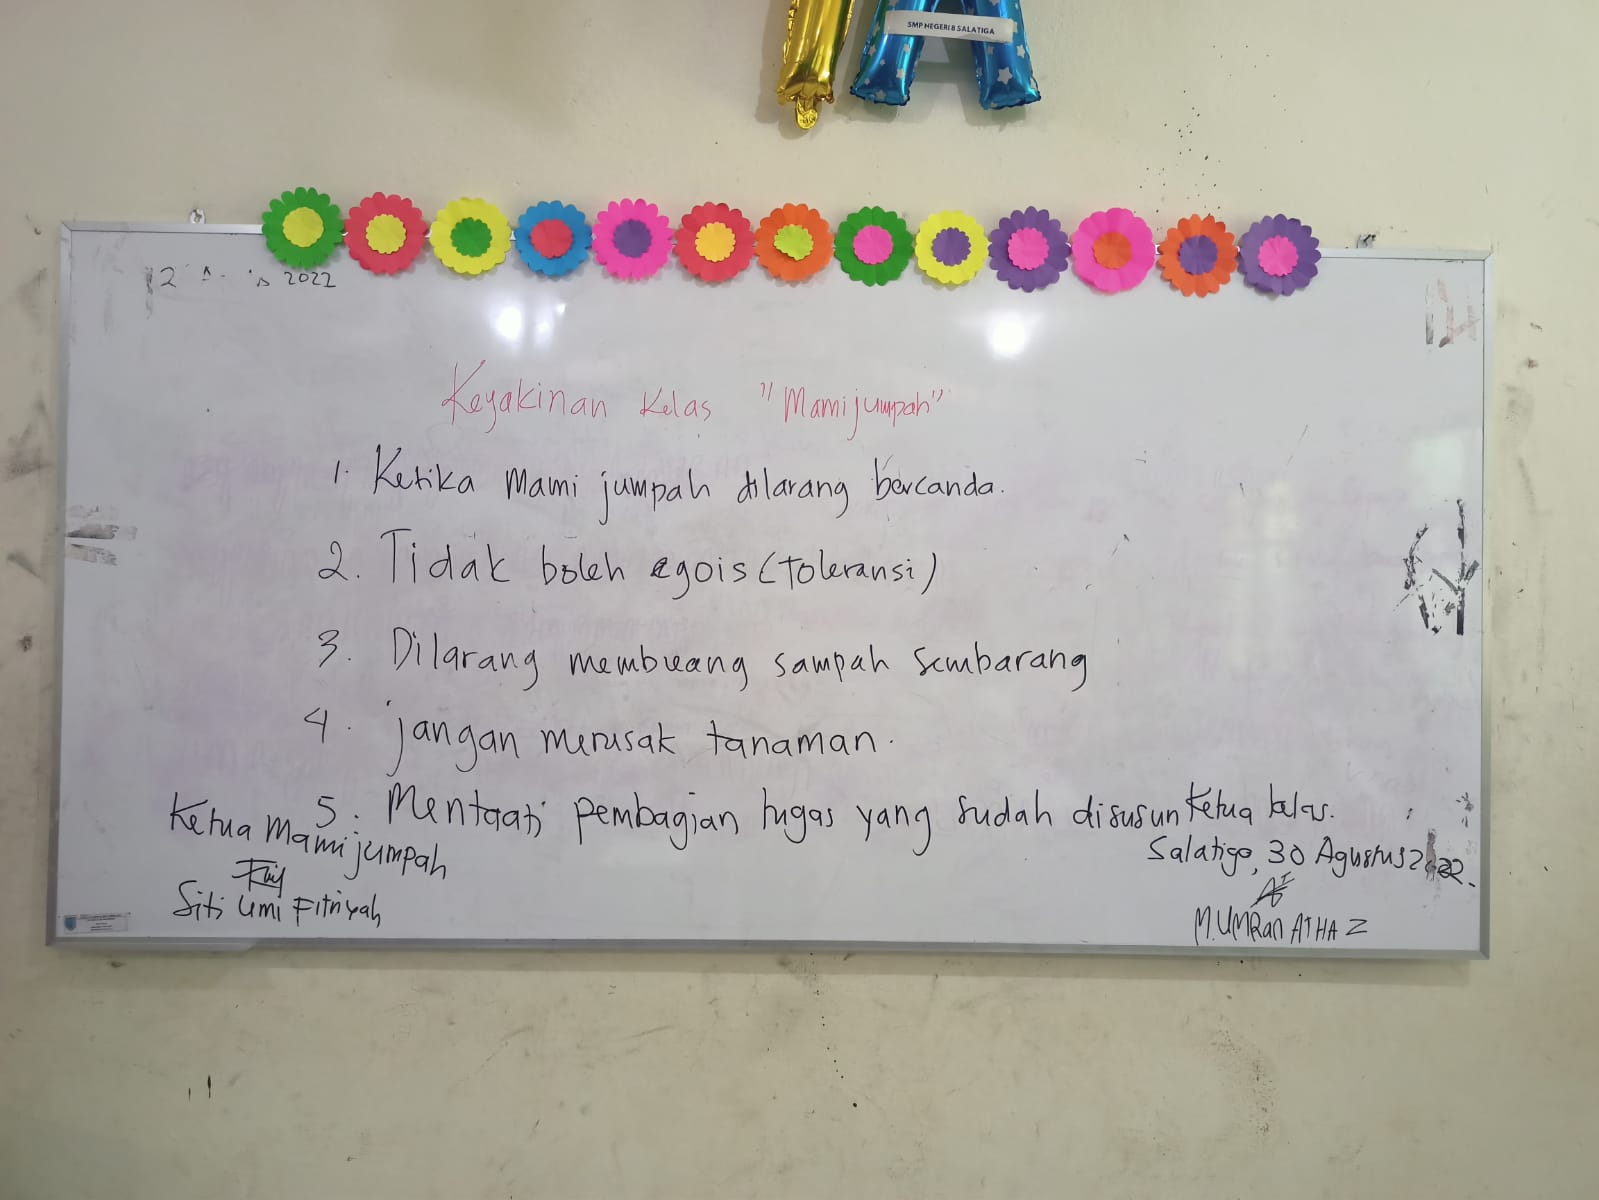 SMP NEGERI 8 SALATIGA
12 2022
Keyakinan Kelas "Mamijumpah"
1. Ketika Mami jumpah dilarang bercanda.
2. Tidak boleh egois (toleransi)
3. Dilarang membuang sampah sembarang
4. jangan merusak tanaman.
5. Mentaati pembagian tugas yang sudah disusun Ketua kelas.
Ketua Mami jumpah
Siti Umi Fitriyah
Salatiga, 30 Agustus 2022.
M. UMRan ATHA Z